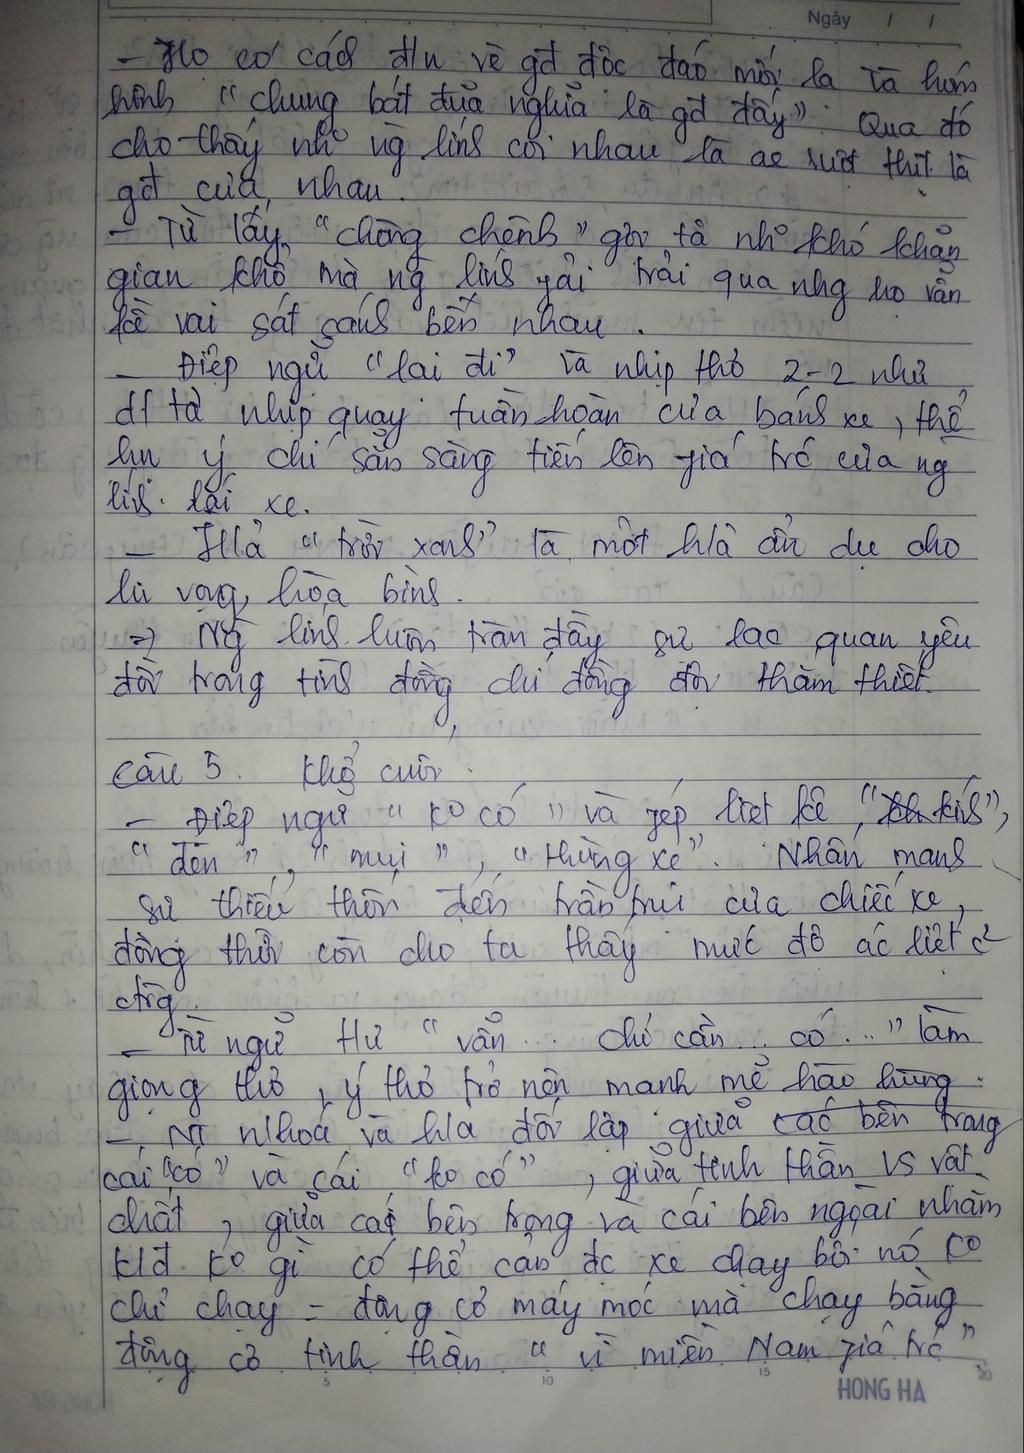 Ngày / /
- Họ có cách đ/n về gđ độc đáo mới lạ và hóm
hỉnh "chung bát đũa nghĩa là gđ đấy". Qua đó
cho thấy nh~ ng lính coi nhau là ae ruột thịt là
gđ của nhau.
- Từ láy "chông chênh" gợi tả nh~ khó khăn
gian khổ mà ng lính fải trải qua nhg họ vẫn
kề vai sát cánh bên nhau.
- Điệp ngữ "lại đi" và nhịp thơ 2-2 như
d/t tả nhịp quay tuần hoàn của bánh xe, thể
hn ý chí sẵn sàng tiến lên fía trc của ng
lính lái xe.
- H/ả "trời xanh" là một h/ả ẩn dụ cho
hi vọng, hòa bình.
=> Ng lính luôn tràn đầy sự lạc quan yêu
đời trong tình đồng chí đồng đội thắm thiết.
Câu 5. Khổ cuối.
- Điệp ngữ "ko có" và fép liệt kê, "kính",
"đèn", "mui", "thùng xe". Nhấn mạnh
sự thiếu thốn đến trần trụi của chiếc xe,
đồng thời còn cho ta thấy mức độ ác liệt c²
ctrg.
- Từ ngữ "vẫn ... chỉ cần .. có .." làm
giọng thơ, ý thơ trở nên mạnh mẽ hào hùng.
- NT nhoá và h/a đối lập giữa các bên trong
cái "có" và cái "ko có", giữa tinh thần vs vật
chất, giữa cái bên trong và cái bên ngoài nhằm
kđ ko gì có thể cản đc xe chạy bởi nó ko
chỉ chạy = động cơ máy móc mà chạy bằng
động cơ tinh thần "vì miền Nam fía trc"
5 10 15 20
HONG HA